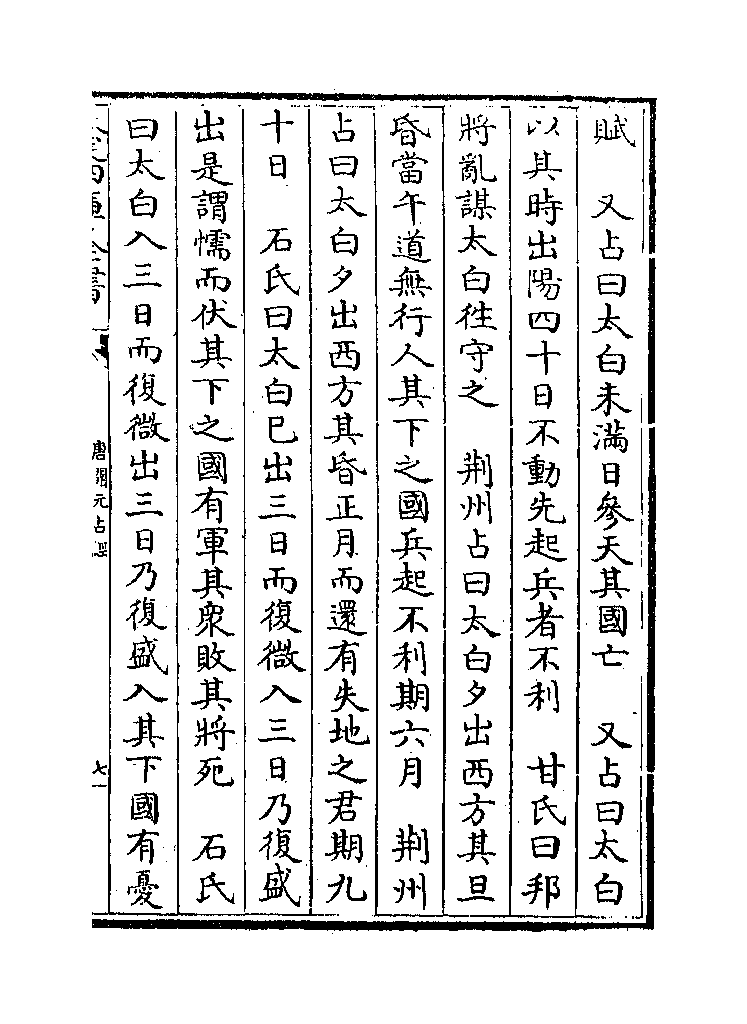 賦　又占曰太白未滿日參天其國亡　又占曰太白
以其時出陽四十日不動先起兵者不利　甘氏曰邦
將亂謀太白徃守之　荆州占曰太白夕出西方其旦
昏當午道無行人其下之國兵起不利期六月　荆州
占曰太白夕出西方其昏正月而還有失地之君期九
十日　石氏曰太白巳出三日而復微入三日乃復盛
出是謂懦而伏其下之國有軍其衆敗其將死　石氏
曰太白入三日而復微出三日乃復盛入其下國有憂
唐開元占經